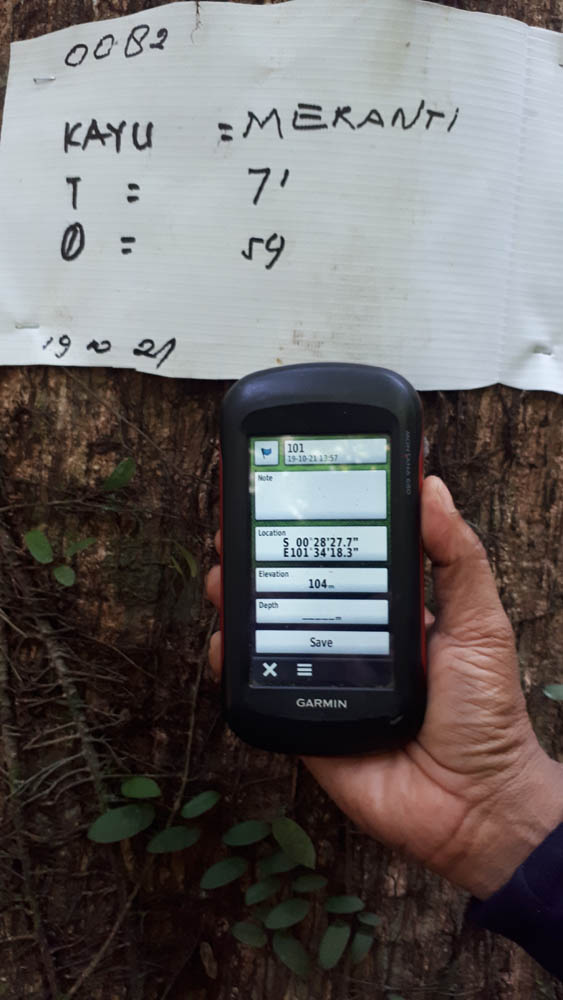 0082
KAYU = MERANTI
T = 7'
Ø = 59
19 10 21
101
19-10-21 13:57
Note
Location
S 00°28'27.7"
E101°34'18.3"
Elevation
104m
Depth
_____m
Save
GARMIN
MONTANA 680